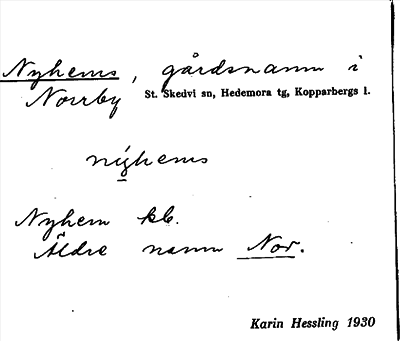 Nyhems, gårdsnamn i
Norrby St. Skedvi sn, Hedemora tg, Kopparbergs l.
nýhems
Nyhem kb.
Äldre namn Nor.
Karin Hessling 1930